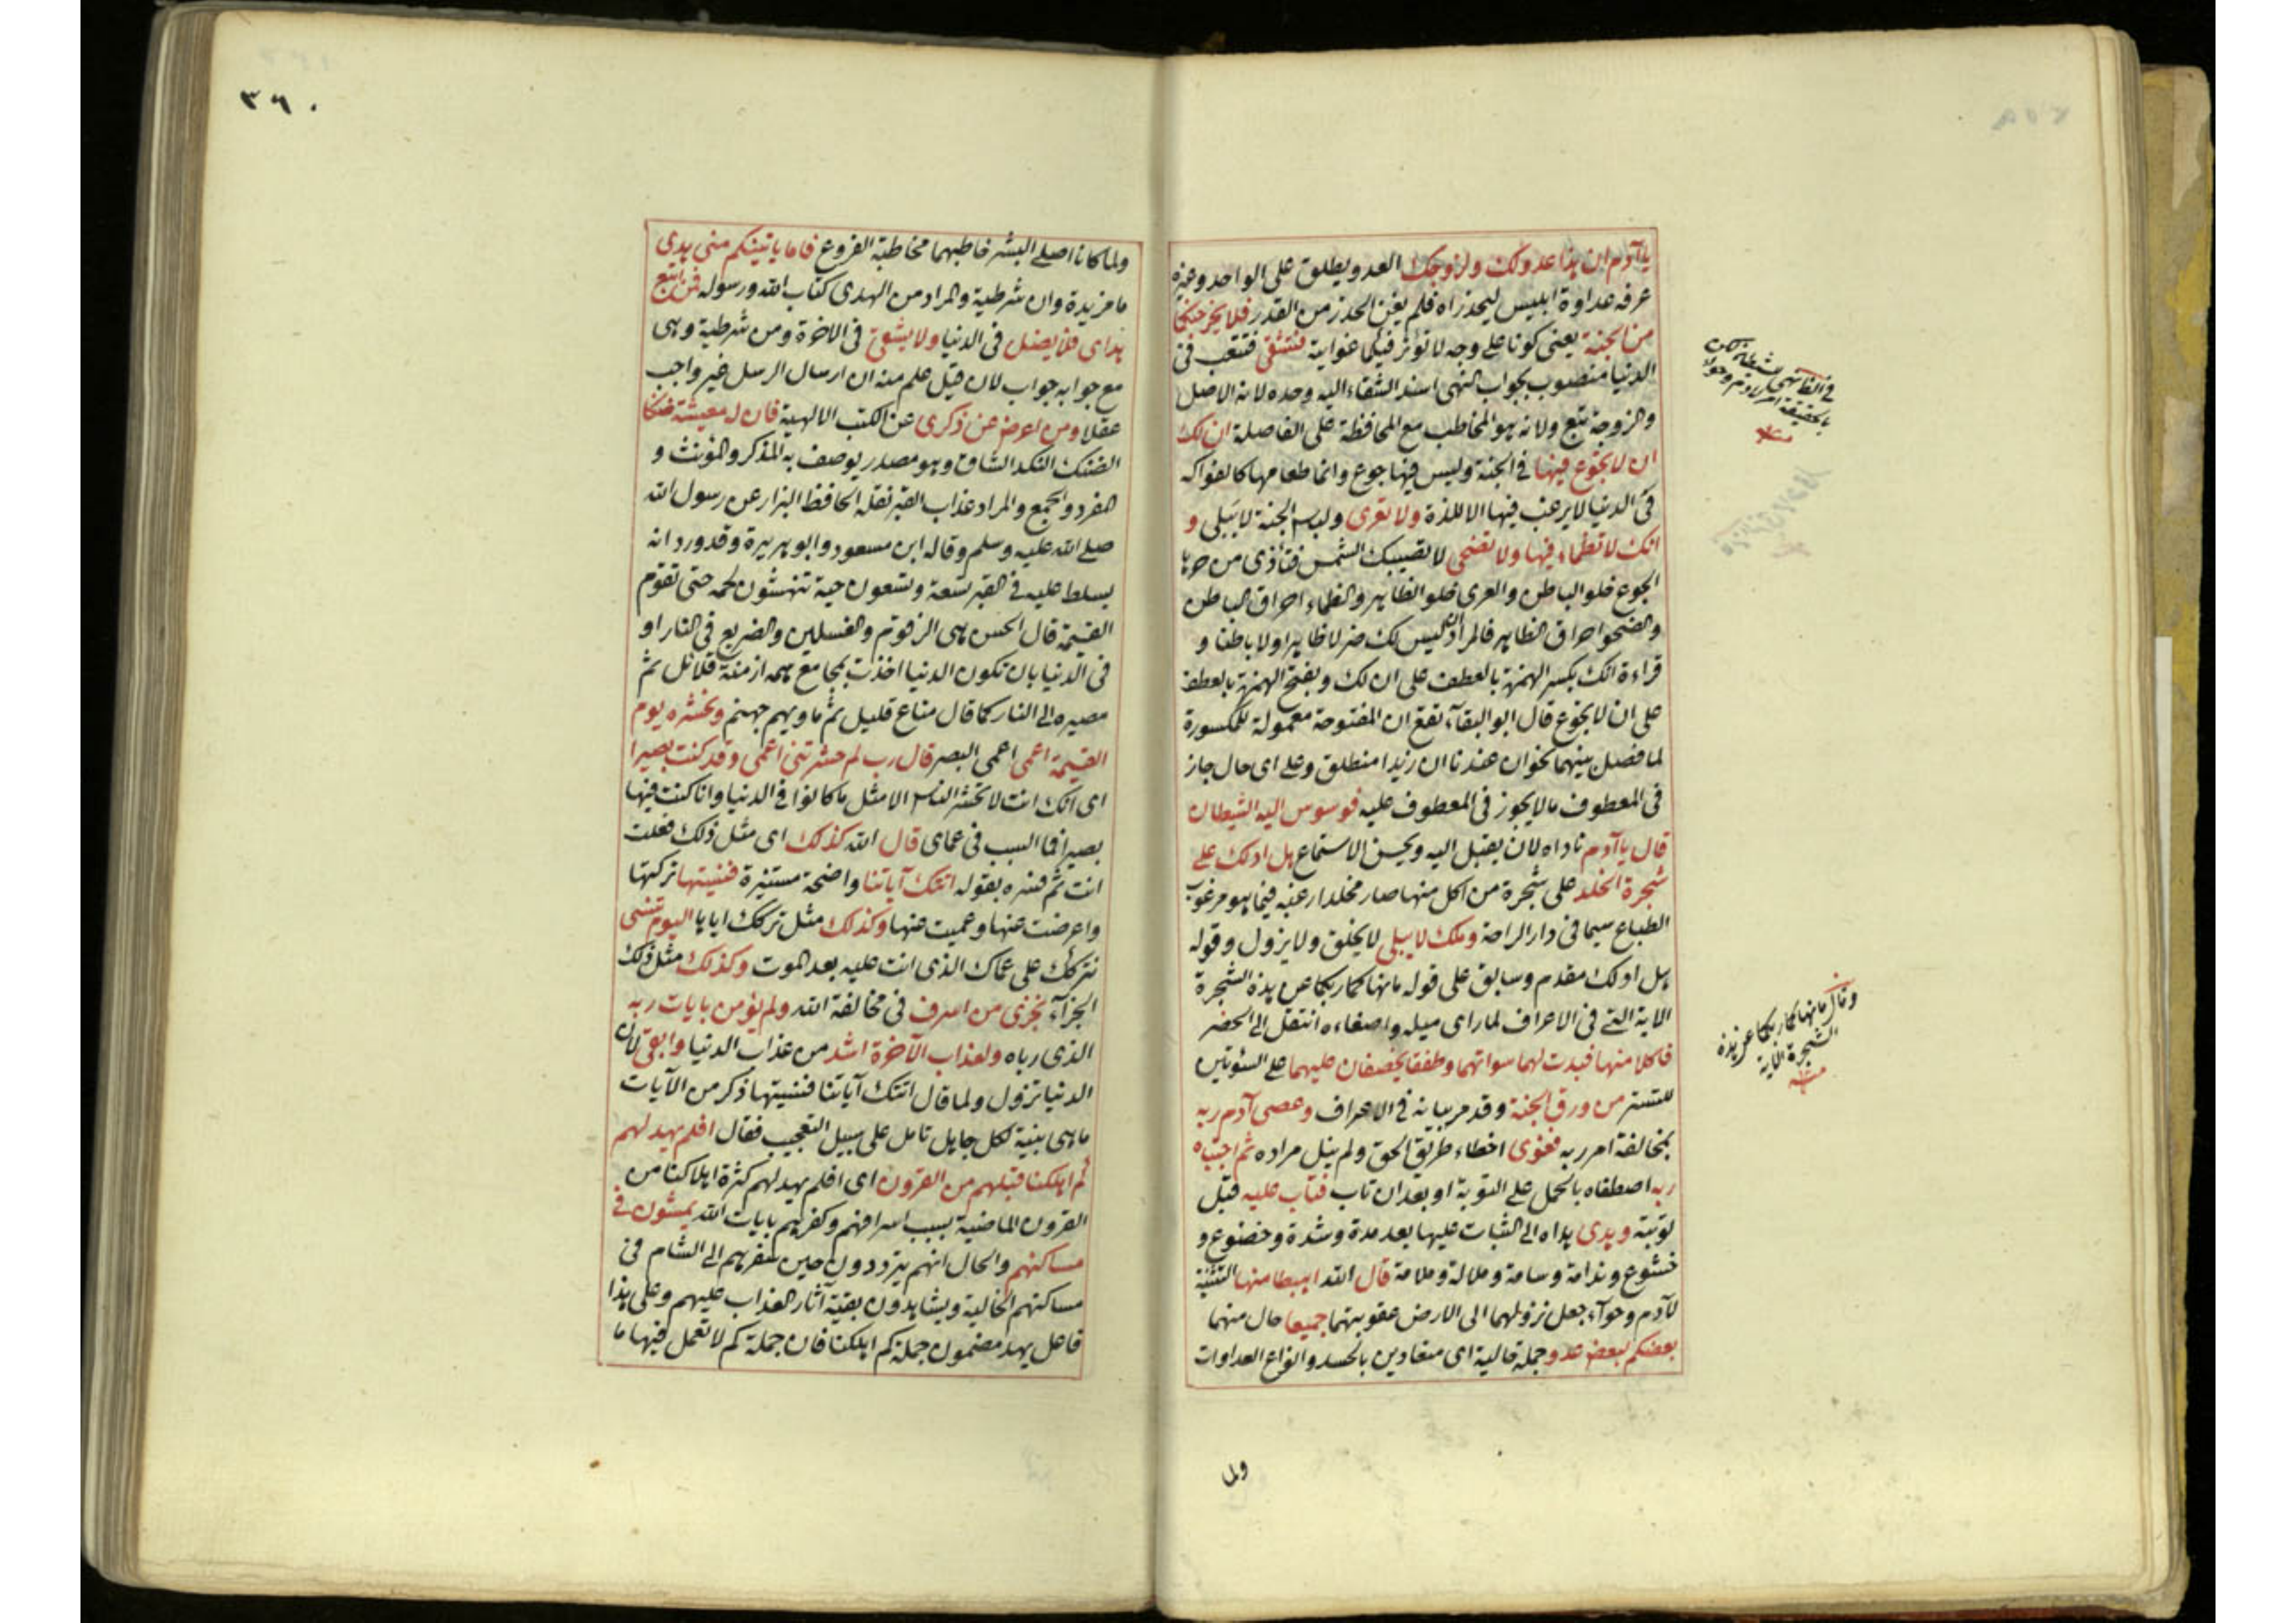 يا آدم ان هذا عدو لك ولزوجك العدو يطلق على الواحد وغيره
عرفه عداوة ابليس ليحذراه فلم يغن الحذر من القدر فلا يخرجنكما
من الجنة يعنى كونا على وجه لا تؤثر فيكما غوايته فتشقى فتتعب فى
الدنيا منصوب بجواب النهى اسند الشقاء اليه وحده لانه الاصل
والزوجة تبع ولانه هو المخاطب مع المحافظة على الفاصلة ان لك
ان لا تجوع فيها فى الجنة وليس فيها جوع وانما طعامها كالفواكه
فى الدنيا لا يرغب فيها الا للذة ولا تعرى ولباس الجنة لا يبلى و
انك لا تظماء فيها ولا تضحى لا تصيبك الشمس فتأذى من حرها
الجوع خلو الباطن والعرى خلو الظاهر والظماء احراق الباطن
والضحو احراق الظاهر فالمراد انه ليس لك ضر لا ظاهرا ولا باطنا و
قراءة انك بكسر الهمزة بالعطف على ان لك وبفتح الهمزة بالعطف
على ان لا تجوع قال ابو البقآء تقع ان المفتوحة معمولة للمكسورة
لما فصل بينهما نحو ان عندنا ان زيدا منطلق وعلى اى حال جاز
فى المعطوف ما لا يجوز فى المعطوف عليه فوسوس اليه الشيطان
قال يا آدم ناداه لان يقبل اليه ويحسن الاستماع هل ادلك على
شجرة الخلد على شجرة من اكل منها صار مخلدا رغبه فيما هو مرغوب
الطباع سيما فى دار الراحة وملك لا يبلى لا يخلق ولا يزول وقوله
هل ادلك مقدم وسابق على قوله ما نهاكما ربكما عن هذه الشجرة
الاية التى فى الاعراف لما راى ميله واصغاءه انتقل الى الحصر
فاكلا منها فبدت لهما سواتهما وطفقا يخصفان عليهما على السوئتين
للتستر من ورق الجنة وقد مر بيانه فى الاعراف وعصى آدم ربه
بمخالفة امر ربه فغوى اخطاء طريق الحق ولم ينل مراده ثم اجتباه
ربه اصطفاه بالحمل على التوبة او بعد ان تاب فتاب عليه قبل
توبته وهدى هداه الى الثبات عليها بعد مدة وشدة وخضوع و
خشوع وندامة وسامة وملالة وملامة قال الله اهبطا منها التثنية
لآدم وحوآء جعل نزولهما الى الارض عقوبتهما جميعا حال منهما
بعضكم لبعض عدو جملة حالية اى متعادين بالحسد وانواع العداوات
وقال ما نهاكما ربكما عن هذه
الشجرة الاية
منه
ولما
٣٦٠
ولما كانا اصلى البشر خاطبهما مخاطبة الفروع فاما ياتينكم منى هدى
ما مزيدة وان شرطية والمراد من الهدى كتاب الله ورسوله فمن اتبع
هداى فلا يضل فى الدنيا ولا يشقى فى الاخرة ومن شرطية وهى
مع جوابه جواب لان قيل علم منه ان ارسال الرسل غير واجب
عقلا ومن اعرض عن ذكرى عن الكتب الالهية فان له معيشة ضنكا
الضنك النكد الشاق وهو مصدر يوصف به المذكر والمؤنث و
المفرد والجمع والمراد عذاب القبر نقله الحافظ البزار عن رسول الله
صلى الله عليه وسلم وقاله ابن مسعود وابو هريرة وقد ورد انه
يسلط عليه فى القبر تسعة وتسعون حية تنهشون لحمه حتى تقوم
القيمة قال الحسن هى الزقوم والغسلين والضريع فى النار او
فى الدنيا بان تكون الدنيا اخذت بمجامع همه ازمنة قلائل ثم
مصيره الى النار كما قال متاع قليل ثم ماويهم جهنم ونحشره يوم
القيمة اعمى اعمى البصر قال رب لم حشرتنى اعمى وقد كنت بصيرا
اى انك انت لا تحشر الناس الا مثل ما كانوا فى الدنيا وانا كنت فيها
بصيرا فما السبب فى عماى قال الله كذلك اى مثل ذلك فعلت
انت ثم فسره بقوله اتتك آياتنا واضحة مستنيرة فنسيتها تركتها
واعرضت عنها وعميت عنها وكذلك مثل تركك اياها اليوم تنسى
نتركك على عماك الذى انت عليه بعد الموت وكذلك مثل ذلك
الجزآء نجزى من اسرف فى مخالفة الله ولم يؤمن بايات ربه
الذى رباه ولعذاب الآخرة اشد من عذاب الدنيا وابقى لان
الدنيا تزول ولما قال اتتك آياتنا فنسيتها ذكر من الآيات
ما هى بينة لكل جاهل تامل على سبيل التعجيب فقال افلم يهد لهم
كم اهلكنا قبلهم من القرون اى افلم يهد لهم كثرة اهلاكنا من
القرون الماضية بسبب اسرافهم وكفرهم بايات الله يمشون فى
مساكنهم والحال انهم يترددون حين سفرهم الى الشام فى
مساكنهم الخالية ويشاهدون بقية آثار العذاب عليهم وعلى هذا
فاعل يهد مضمون جملة كم اهلكنا فان جملة كم لا تعمل فيها ما